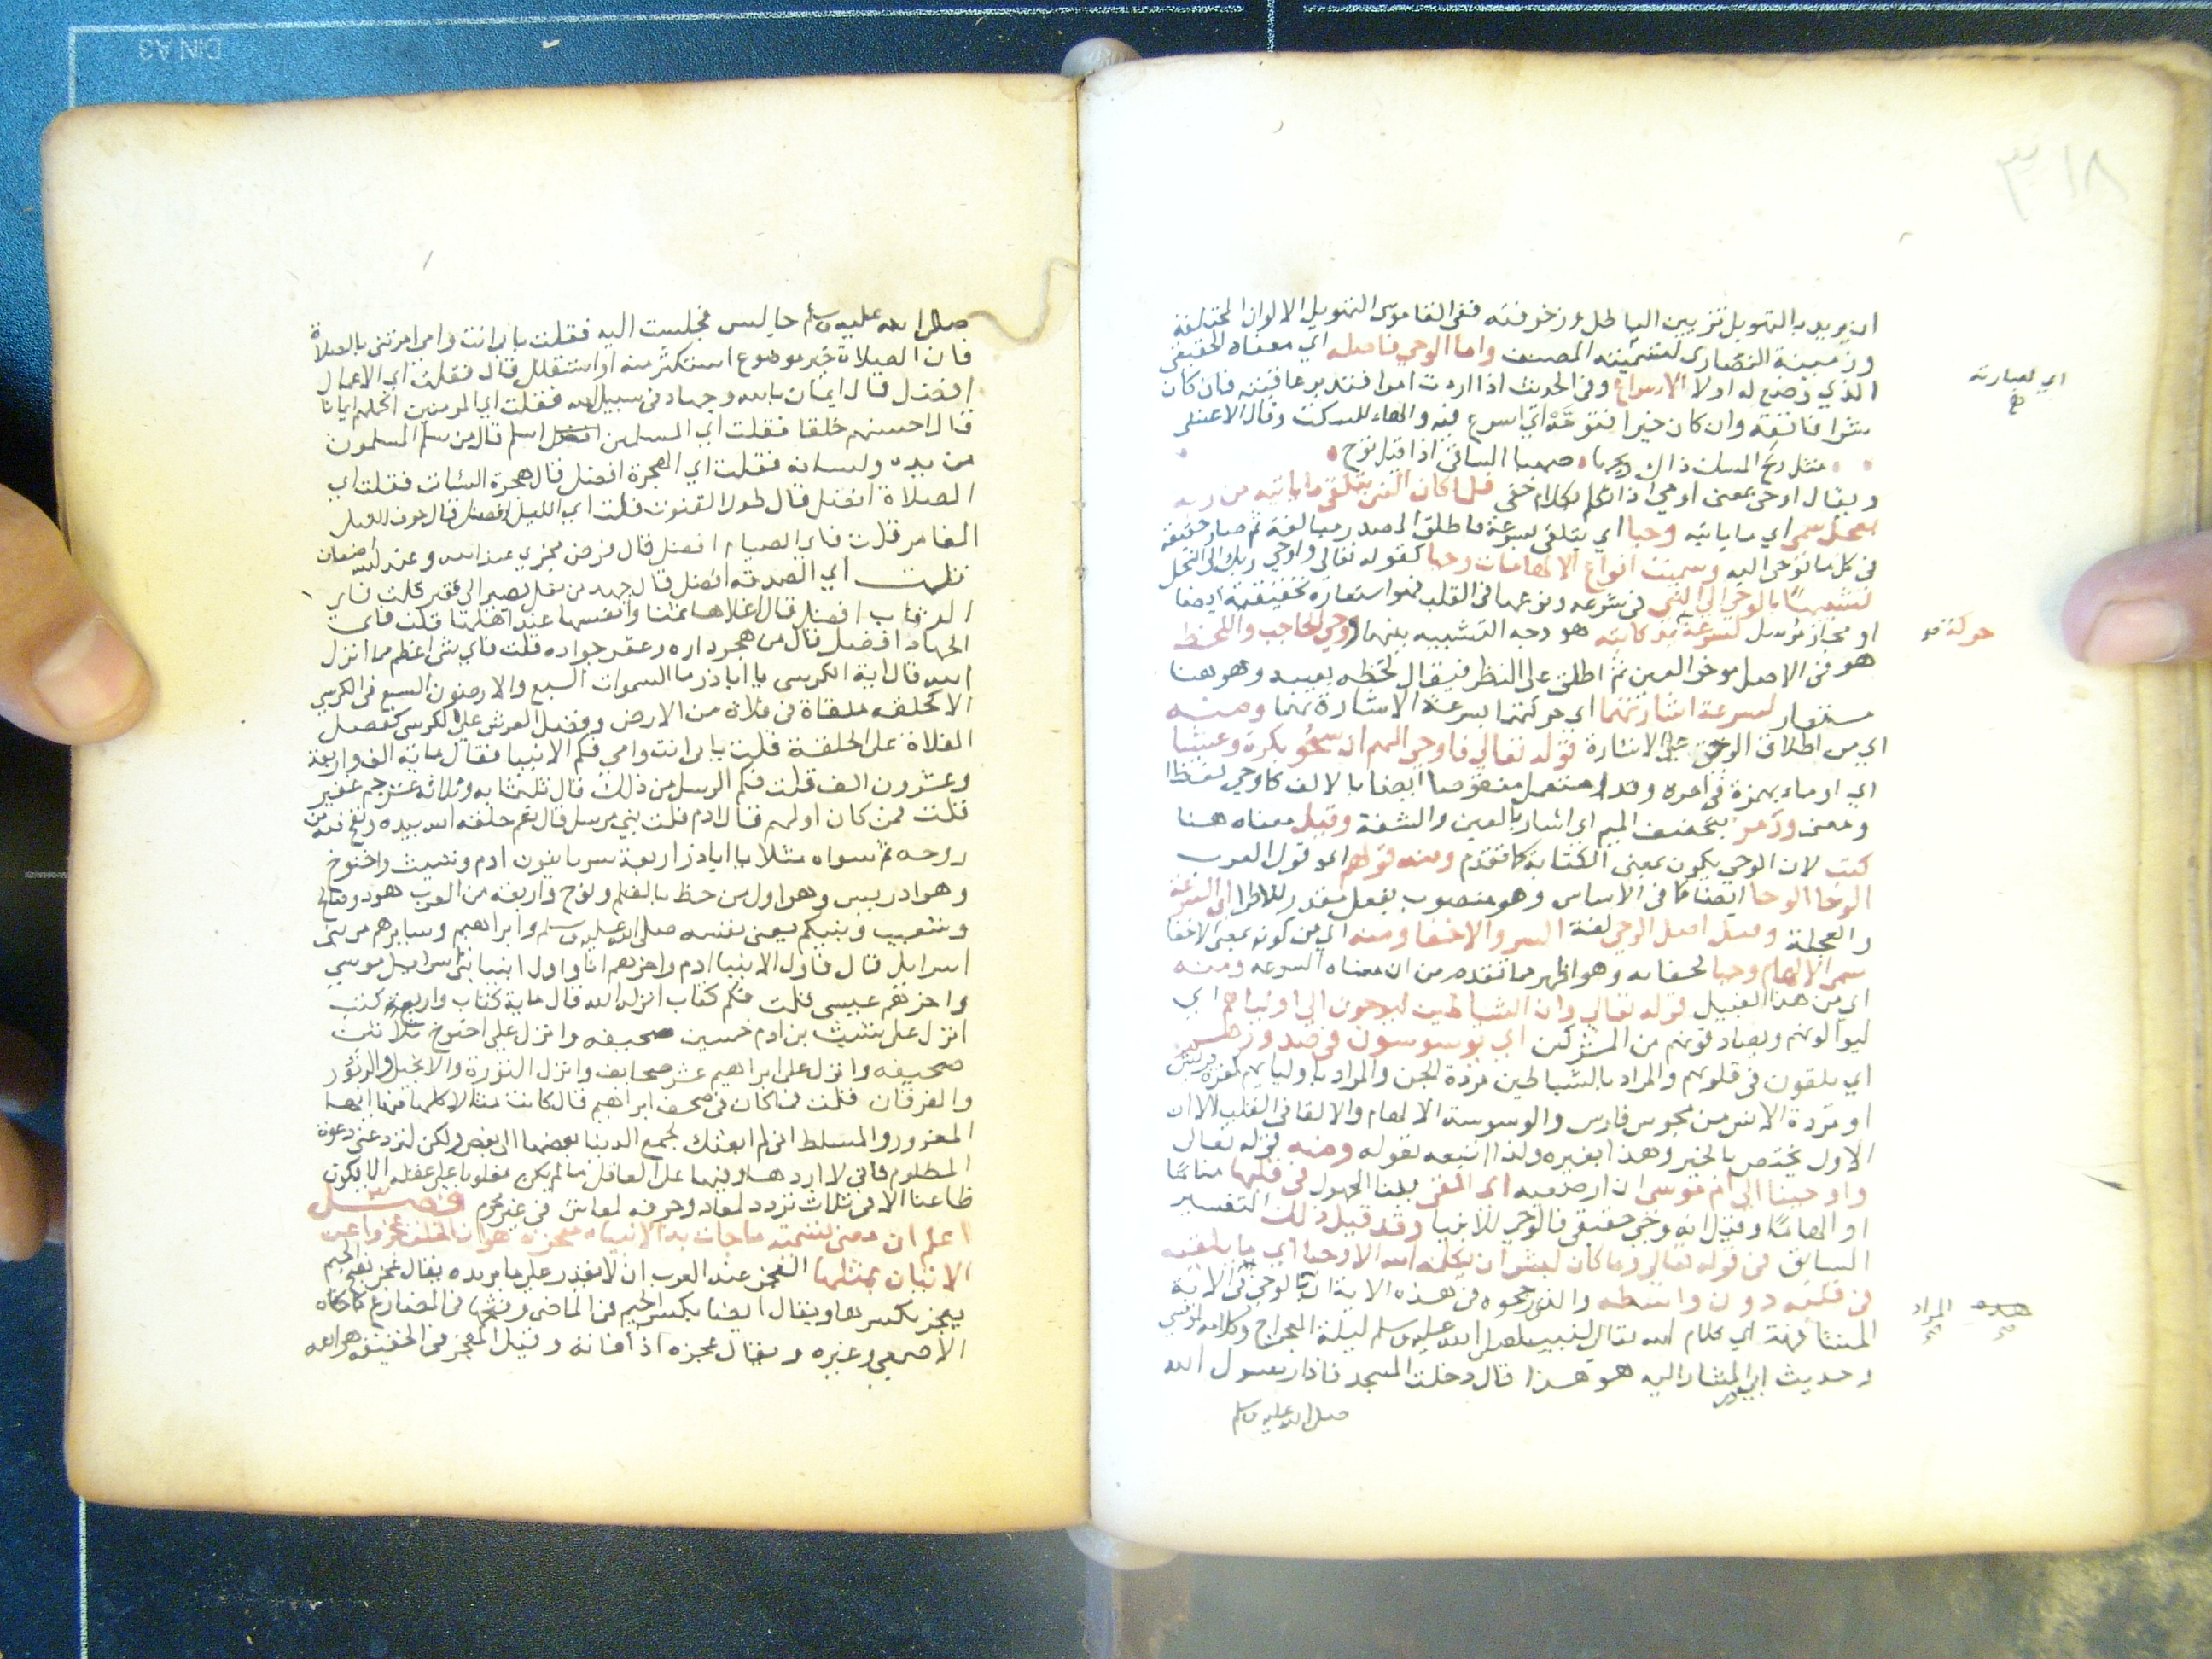 ٣١٨
ان يريد بالتهويل تزيين الباطل وزخرفته ففي القاموس التهويل الالوان المختلفة
وزينة التصاوير المصنف واما الوحي فاصله اي معناه الحقيقي
الذي وضع له اولا الاسراع وفي الحديث اذا اردت امرا فتدبر عاقبته فان كان
شرا فانته وان كان خيرا فتوحَّهْ اي اسرع فيه والهاء للسكت وقال الاعشى
مثل ريح المسك ذاك ريحها صبها الساقي اذا قيل توح
ويقال اوحى بمعنى اومى اذا تكلم بكلام خفي فلما كان النبي يتلقى ما ياتيه من ربه
بعجل سمي اي ما ياتيه وحيا اي يتلقى بسرعة فاطلق المصدر مبالغة ثم صار حقيقة
في كل ما يوحى اليه وسميت انواع الالهامات وحيا كقوله تعالى واوحى ربك الى النحل
تشبيها بالوحي الى النبي في سرعة وقوعها في القلب فهو استعارة تحقيقية ايضا
او مجاز مرسل لسرعة حركاته هو وجه التشبيه بينهما ووحي الحاجب واللحظ
هو في الاصل موخر العين ثم اطلق على النظر فيقال لحظه بعينه وهو هنا
مستعار لسرعة اشارتهما اي حركتهما بسرعة الاشارة بهما ومنه
اي من اطلاق الوحي على الاشارة قوله تعالى فاوحى اليهم ان سبحوا بكرة وعشيا
اي اوماء بهمزة في اخره وقد استعمل منقوصا ايضا بالالف كاوحى لفظا
ومعنى ورمز بتخفيف الميم اي اشار بالعين والشفة وقيل معناه هنا
كتب لان الوحي يكون بمعنى الكتابة كما تقدم ومنه قولهم اي قول العرب
الوحا الوحا ايضا كما في الاساس وهو منصوب بفعل مقدر للاغراء اي السرعة
والعجلة وقيل اصل الوحي لغة السر والاخفا ومنه اي من كونه بمعنى الاخفا
سمي الالهام وحيا لخفائه وهو اظهر مما تقدم من ان معناه السرعة ومنه
اي من هذا القبيل قوله تعالى وان الشياطين ليوحون الى اوليائهم اي
ليوالونهم ويصادقونهم من المشركين اي يوسوسون في صدورهم
اي يلقون في قلوبهم والمراد بالشياطين مردة الجن والمراد باوليائهم كفرة قريش
او مردة الانس من مجوس فارس والوسوسة الالهام والالقا في القلب الا ان
الاول يختص بالخير وهذا بغيره ولذا اتبعه بقوله ومنه قوله تعالى
واوحينا الى ام موسى ان ارضعيه اي القي ببنا المجهول في قلبها مناما
او الهاما وقيل انه وحي حقيقي فالوحي للانبيا وقد قيل ذلك التفسير
السابق في قوله تعالى وما كان لبشر ان يكلمه الله الا وحيا اي ما يلقيه
في قلبه دون واسطة والذي رجحوه في هذه الاية ان بالوحي في الاية
المشافهة اي كلام الله تعالى لنبيه صلى الله عليه وسلم ليلة المعراج وكلامه لموسى
وحديث ابي ذر المشار اليه هو هذا قال دخلت المسجد فاذا رسول الله
صلى الله عليه وسلم
اي لعبارته
حركة
هذه المراد
صلى الله عليه وسلم جالس فجلست اليه فقلت بابي انت وامي امرتني بالصلاة
فان الصلاة خير موضوع استكثر منه او استقلل قال فقلت اي الاعمال
افضل قال ايمان بالله وجهاد في سبيل الله فقلت اي المومنين اكملهم ايمانا
قال احسنهم خلقا فقلت اي المسلمين اسلم قال من سلم المسلمون
من يده ولسانه فقلت اي الهجرة افضل قال هجرة السئات فقلت اي
الصلاة افضل قال طول القنوت قلت اي الليل افضل قال جوف الليل
الغابر قلت فاي الصيام افضل قال فرض مجزي عند الله وعند الله اضعاف
قلت اي الصدقة افضل قال جهد من مقل يصير الى فقير قلت فاي
الرقاب افضل قال اغلاها ثمنا وانفسها عند اهلها قلت فاي
الجهاد افضل قال من هجر داره وعقر جواده قلت فاي شي اعظم مما انزل
الله قال اية الكرسي يا اباذر ما السموات السبع والارضون السبع في الكرسي
الا كحلقة ملقاة في فلاة من الارض وفضل العرش على الكرسي كفضل
الفلاة على الحلقة قلت بابي انت وامي فكم الانبيا فقال ماية الف واربعة
وعشرون الف قلت فكم الرسل من ذلك قال ثلثماية وثلاثة عشر جم غفير
قلت فمن كان اولهم قال ادم قلت نبي مرسل قال نعم خلقه الله بيده ونفخ فيه من
روحه ثم سواه مثلا يا اباذر اربعة سريانيون ادم وشيث واخنوخ
وهو ادريس وهو اول من خط بالقلم ونوح واربعة من العرب هود وصالح
وشعيب ونبيكم يعني نفسه صلى الله عليه وسلم وابراهيم وسايرهم من بني
اسرايل قال فاول الانبيا ادم واخرهم انا واول انبيا بني اسرايل موسى
واخرهم عيسى قلت فكم كتاب انزله الله قال ماية كتاب واربعة كتب
انزل على شيث بن ادم خمسين صحيفه وانزل على اخنوخ ثلاثين
صحيفه وانزل على ابراهيم عشر صحايف وانزل التورية والانجيل والزبور
والفرقان قلت فما كان في صحف ابراهيم قال كانت مثالا كلها منها ايها
المغرور المسلط اني لم ابعثك لجمع الدنيا بعضها الى بعض ولكن لترد عني دعوة
المظلوم فاني لا اردها وفيها على العاقل ما لم يكن مغلوبا على عقله الا يكون
ظاعنا الا في ثلاث تزود لمعاد وحرفة لمعاش في غير محرم فصل
اعلم ان معنى تسميته ما جات به الانبياء معجزة هو ان الخلق عجزوا عن
الاتيان بمثلها العجز عند العرب ان لا يقدر على ما يريده يقال عجز بفتح الجيم
يعجز بكسرها ويقال ايضا بكسر الجيم في الماضي وفتحها في المضارع كما حكاه
الاصمعي وغيره ويقال عجزه اذا فاته وقيل المعجز في الحقيقة هو الله